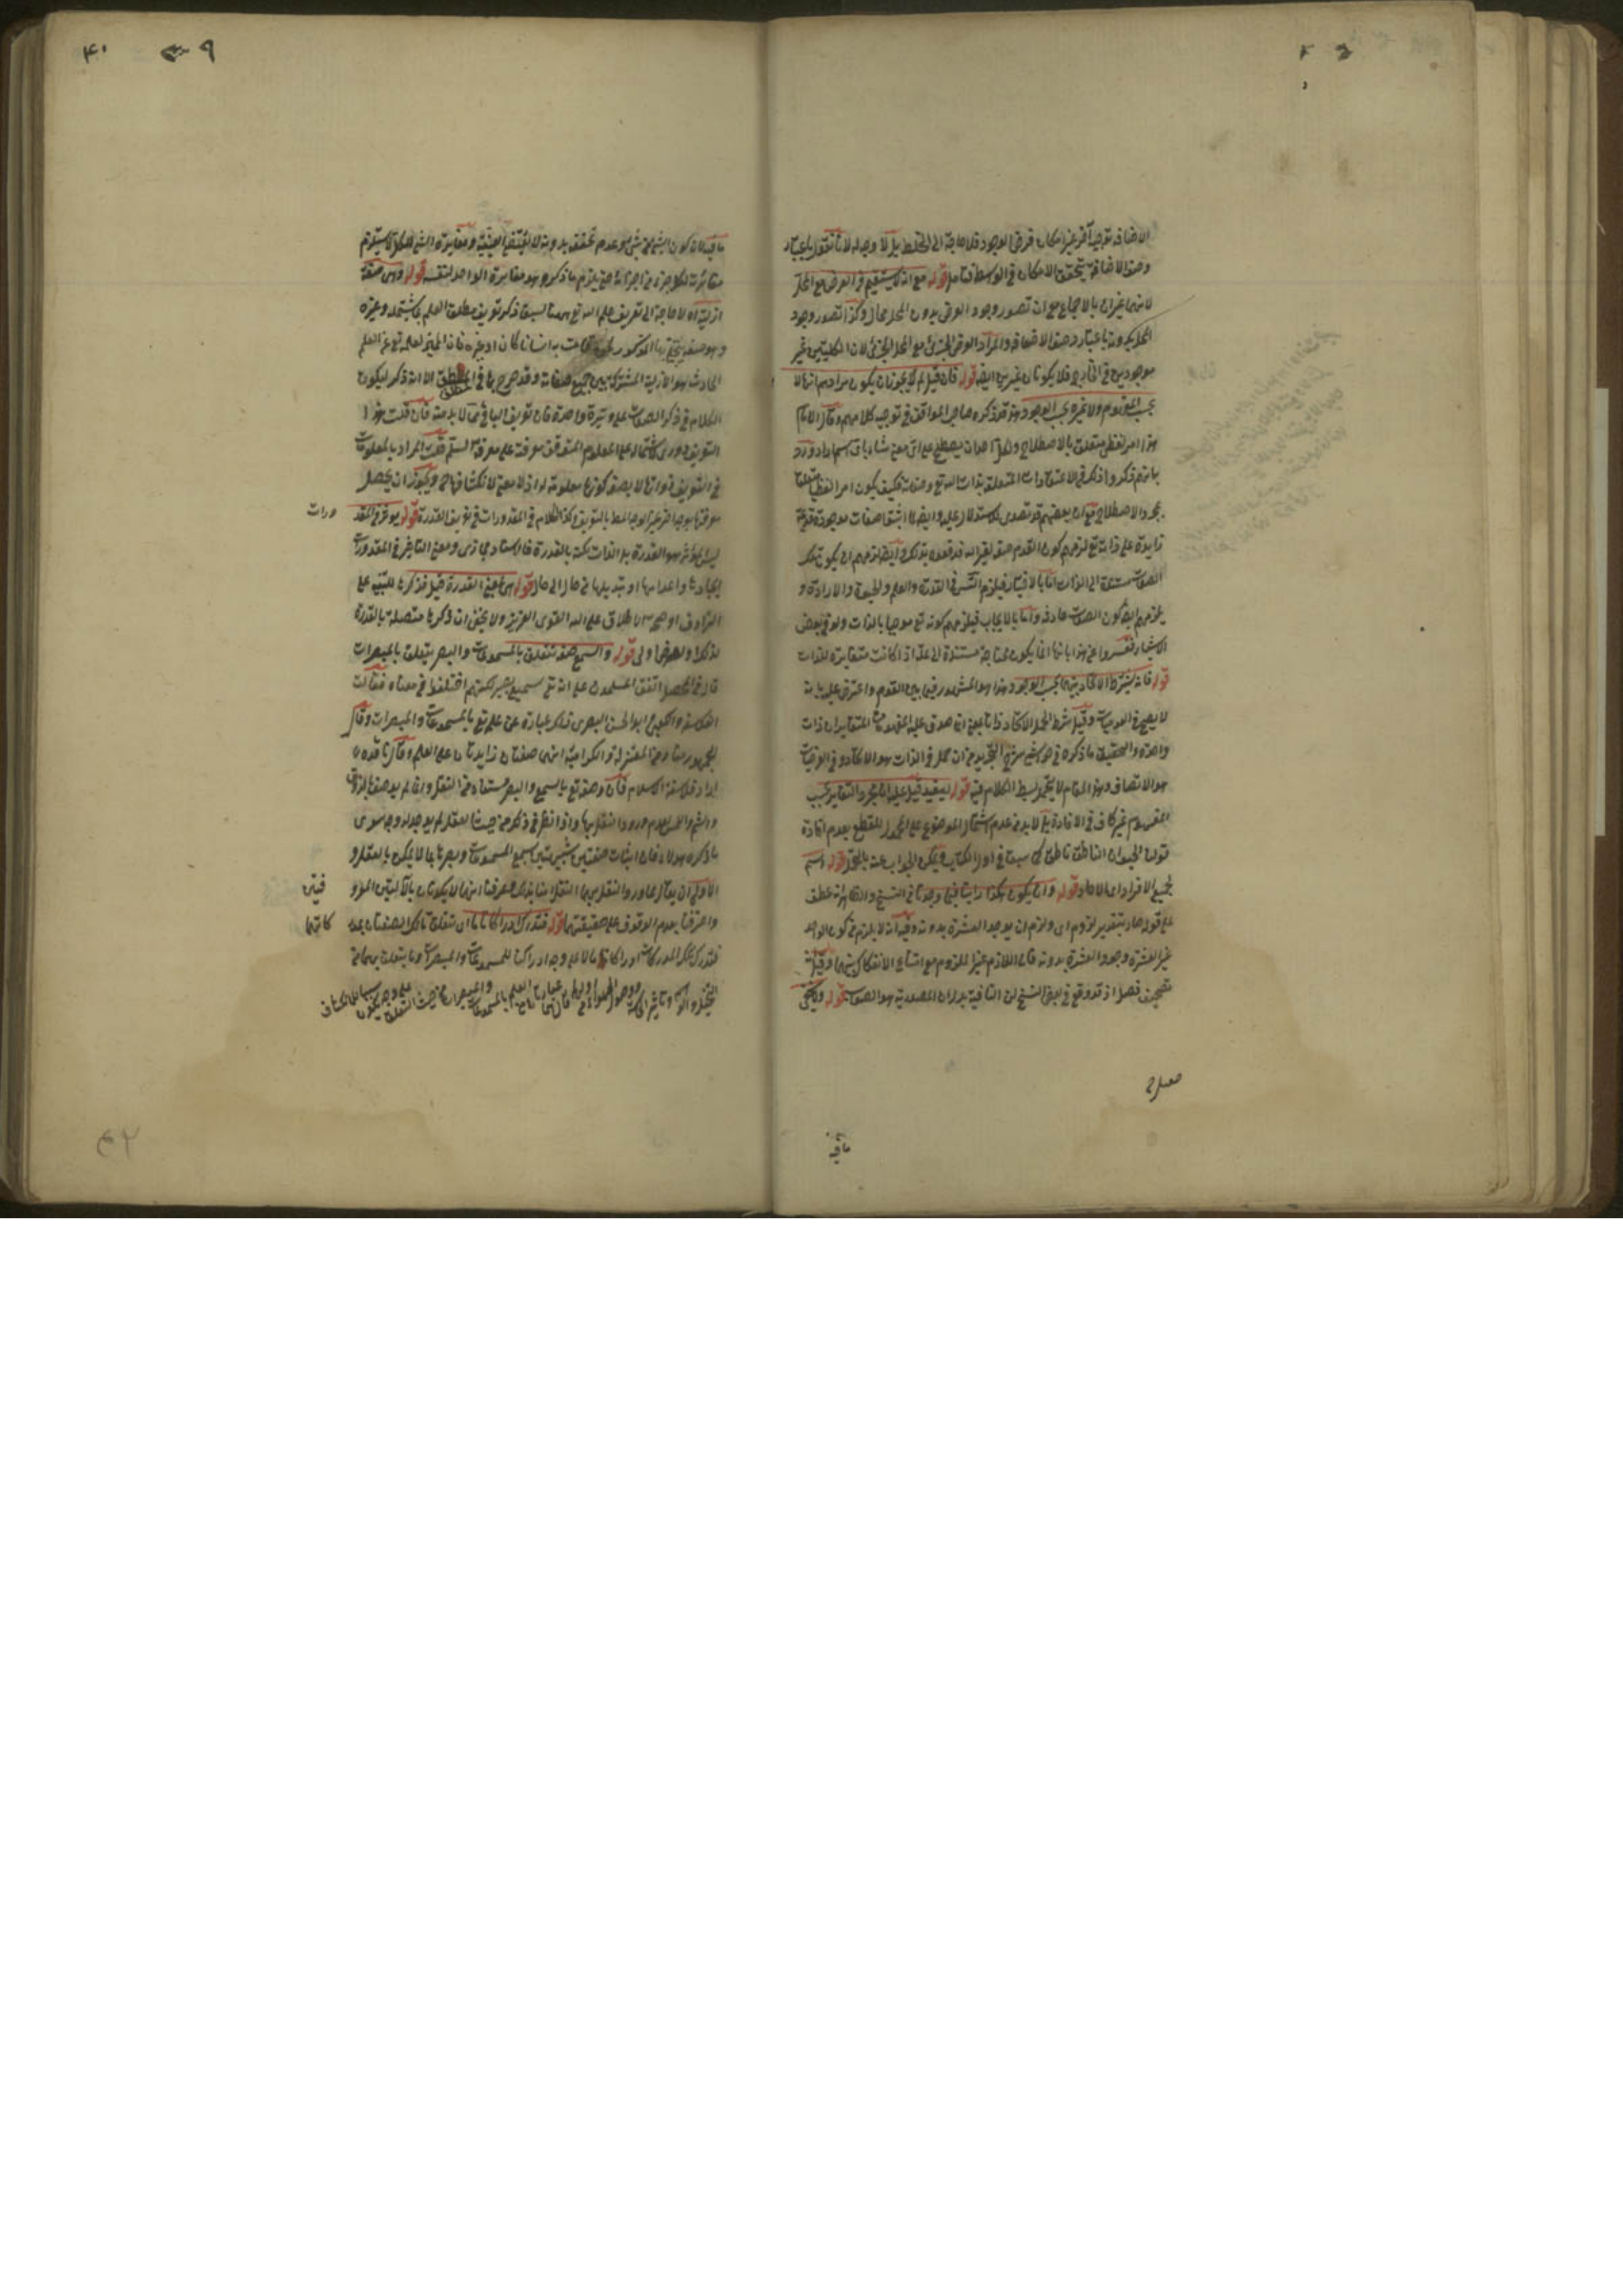 الاضافة توجيه آخر غير امكان فرض الوجود فلا حاجة الى الخلط بل لا وجه له لانا نقول باعتبار
وصف الاضافة يتحقق الامكان في الوسط فتأمل قوله مع انه لا يستقيم في العرض مع المحل
لانهما غيران بالاجماع مع ان تصور وجود العرض بدون المحل محال وكذا تصور وجود
المحل بدونه باعتبار وصف الاضافة والمراد العرض الجزئي مع المحل الجزئي لان الكليتين غير
موجودين في الخارج فلا يكونان غيرين ايضا قوله فان قيل لم لا يجوز ان يكون مرادهم انها لا
بحسب المفهوم ولا غيره بحسب الوجود هو قد ذكره صاحب المواقف في توجيه كلامهم وقال الامام
هذا امر لفظي متعلق بالاصطلاح ولكل احد ان يصطلح على اي معنى شاء باي اسم اراد ورد
بانهم ذكروا ذلك في الاعتقادات المتعلقة بذات الله تع وصفاته فكيف يكون امرا لفظيا متعلقا
بمجرد الاصطلاح مع ان بعضهم قد تصدى للاستدلال عليه وايضا لما اثبتوا صفات موجودة قديمة
زايدة على ذاته تع لزمهم كون القدم صفة لغير الله فدفعوه بذلك وايضا لزمهم ان يكون تلك
الصفات مستندة الى الذات اما بالاختيار فيلزم التسلسل في القدرة والعلم والحيوة والارادة و
يلزمهم ايضا كون الصفات حادثة واما بالايجاب فيلزمهم كونه تع موجبا بالذات ولو في بعض
الاشياء فتستروا عن هذا بانها انما يكون محتاجة مستندة الى علة اذا كانت متغايرة للذات
قوله فانه يشترط الاتحاد بينهما بحسب الوجود هذا هو المشهور فيما بين القوم واعترض عليه بانه
لا يصح في العدميات وقيل شرط الحمل الاتحاد ذاتا بمعنى ان ما صدق عليه المفهومات المتغايران ذات
واحدة والتحقيق ما ذكره في حواشي شرح التجريد من ان حمل في الذات هو الاتحاد وفي العرضيات
هو الاتصاف وهذا المقام لا يتحمل بسط الكلام فيه قوله ليفيد قيل عليه ان مجرد التغاير بحسب
المفهوم غير كاف في الافادة بل لا بد من عدم اشتمال الموضوع على المحمول للقطع بعدم افادة
قولنا الحيوان الناطق ناطق كما سبق في اول الكتاب ويمكن الجواب عنه بالمحل قوله اسم
لجميع الافراد اي الآحاد قوله وان يكون هكذا راينا فيما وجدنا في النسخ والظاهر انه عطف
على قوله صار بتقدير لزوم اي ولزم ان يوجد العشرة بدونه وفيه انه لا يلزم من كون الواحد
غير العشرة وجود العشرة بدونه فان اللازم غير الملزوم مع امتناع الانفكاك بينهما وقيل
تصحيف فصل اذ قد وقع في بعض النسخ لن النافية بدل ان المصدرية هو الصواب قوله ولا يخفى
ما فيه
ما فيه لان كون الشيء من شيء وعدم تحققه بدونه لا يقتضي العينية ومغايرة الشيء للكل لا يستلزم
مغايرته لكل جزء من اجزائه حتى يلزم ما ذكر وهو مغايرة الواحد لنفسه قوله وهي صفة
ازلية اه لا حاجة الى تعريف علم الله تع ههنا لسبق ذكر تعريف مطلق العلم بما يشتمله وغيره
وهو صفة يتجلى بها المذكور لمن قامت به انسانا كان او غيره فان المميز لعلمه تع عن العلم
الحادث هو الازلية المشتركة بين جميع صفاته وقد صرح بها في المطلق الا انه ذكر ليكون
الكلام في ذكر الصفات على وتيرة واحدة فان تعريف الباقي مما لا بد منه فان قلت هذا
التعريف دوري لاشتماله على المعلوم المتوقفة معرفته على معرفة العلم قلت المراد بالمعلومات
في التعريف ذواتها لا بوصف كونها معلومة اذ لا معنى لانكشافها ح ويجوز ان يحصل
معرفتها بوجه آخر غير الوجه الحاصل بالتعريف وكذا الكلام في المقدورات في تعريف القدرة قوله يؤثر في المقد
ورات
ليس المؤثر هو القدرة بل الذات لكنه بالقدرة فالاسناد مجازي ومعنى التاثير في المقدورات
ايجادها واعدامها او تبديلها من حال الى حال قوله هي بمعنى القدرة قيل فذكرها للتنبيه على
الترادف او صحة اطلاق على الله القوي العزيز ولا يخفى ان ذكرها متصلة بالقدرة
لذلك الغرض اولى قوله والسمع صفة تتعلق بالمسموعات والبصر يتعلق بالمبصرات
قال في المحصل اتفق المسلمون على انه تع سميع بصير لكنهم اختلفوا في معناه فقالت
الفلاسفة والكعبي وابو الحسن البصري ذلك عبارة عن علمه تع بالمسموعات والمبصرات وقال
الجمهور منا ومن المعتزلة والكرامية انهما صفتان زايدتان على العلم وقال ناقده
اراد فلاسفة الاسلام فان وصفه تع بالسمع والبصر مستفاد من النقل وانما لم يوصف بالذوق
والشم واللمس لعدم ورود النقل بها واذا نظر في ذلك من حيث العقل لم يوجد له وجه سوى
ما ذكره هؤلاء فان اثبات صفتين شبيهتين بسمع الحيوانات وبصرها مما لا يمكن بالعقل و
الاولى ان يقال لما ورد النقل بهما امنا بذلك وعرفنا انهما لا يكونان بالآلتين المعرو
فتين
واعترفنا بعدم الوقوف على حقيقتهما قوله فتدرك ادراكا تاما اي تتعلق تلك الصفتان بمد
كاتهما
فتدرك تلك المدركات ادراكا تاما لا على وجه ادراكنا للمسموعات والمبصرات وما يتعلق بهما من